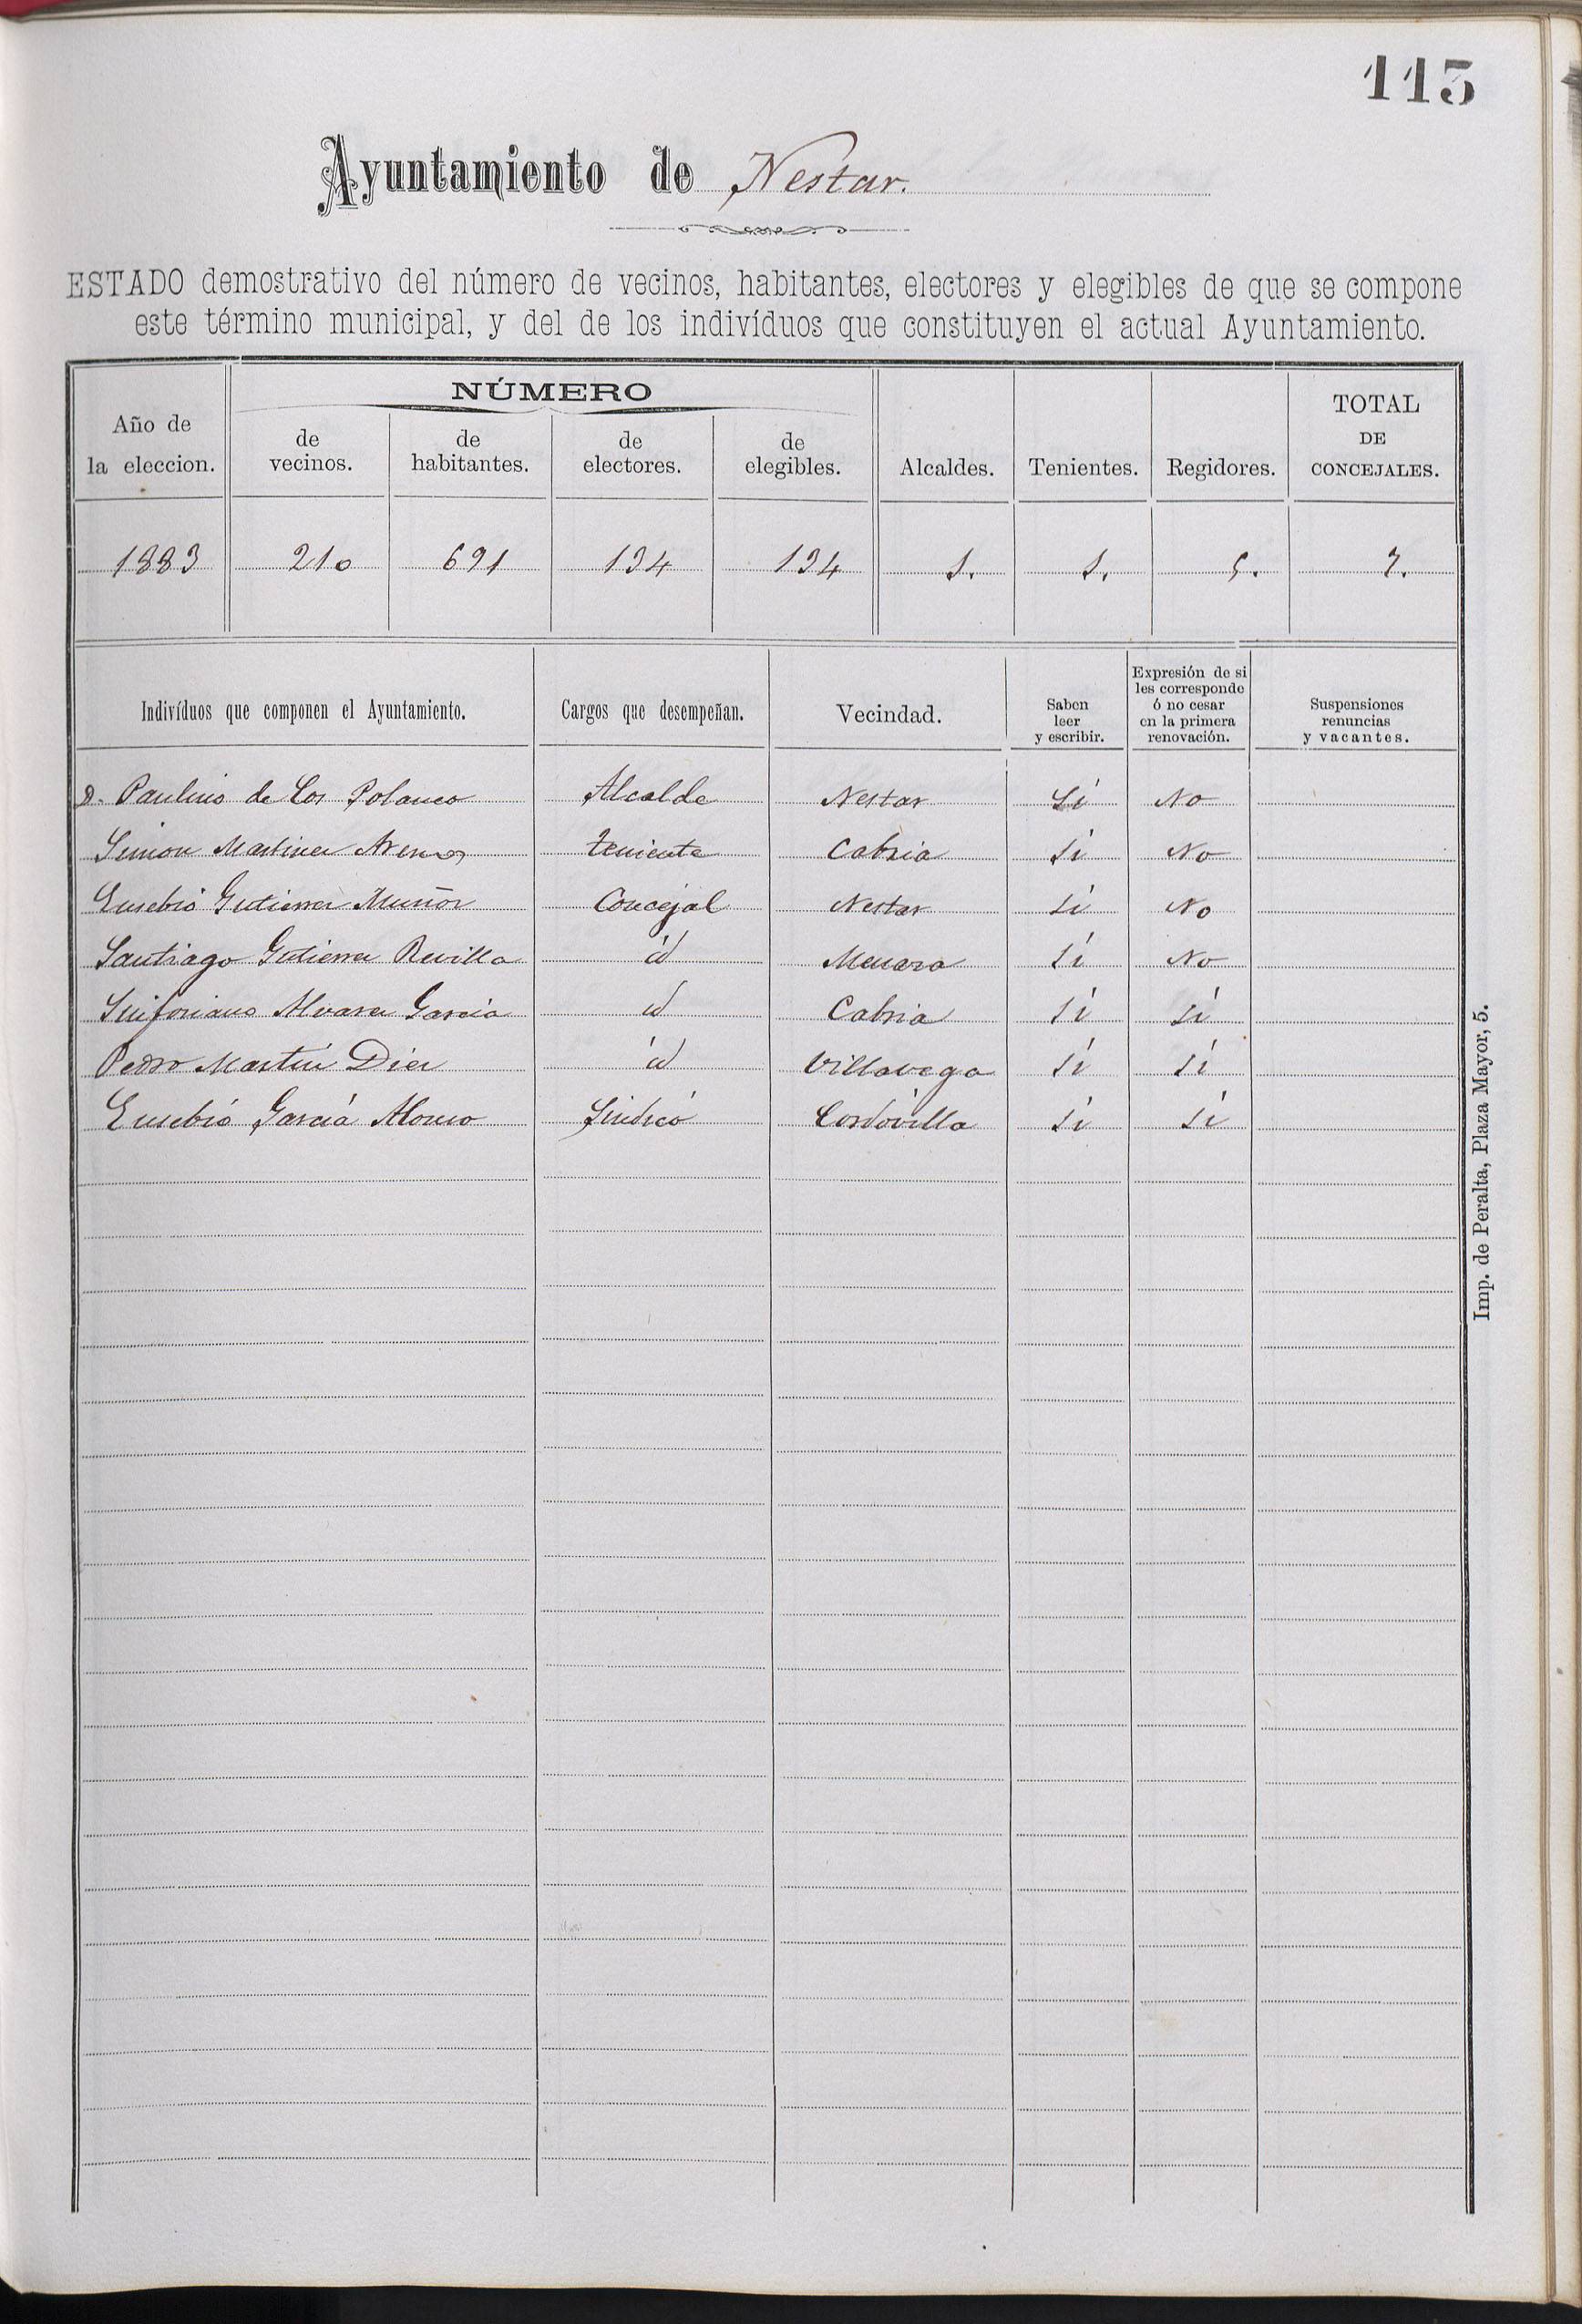 113
Ayuntamiento de Nestar.
ESTADO demostrativo del número de vecinos, habitantes, electores y elegibles de que se compone
este término municipal, y del de los indivíduos que constituyen el actual Ayuntamiento.
Año de la eleccion. NÚMERO de vecinos. de habitantes. de electores. de elegibles. Alcaldes. Tenientes. Regidores. TOTAL DE CONCEJALES.
1883 210 691 134 134 1. 1. 5. 7.
Indivíduos que componen el Ayuntamiento. Cargos que desempeñan. Vecindad. Saben leer y escribir. Expresión de si les corresponde ó no cesar en la primera renovación. Suspensiones renuncias y vacantes.
D. Paulino de Cos Polanco Alcalde Nestar Si No
Simon Martinez teniente Cabria Si No
Eusebio Gutierrez Muñoz Concejal Nestar Si No
Santiago Gutierrez Revilla id Menaza Si No
Sinforiano Alvarez Garcia id Cabria Si Si
Pedro Martin Diez id Villavega Si Si
Eusebio Garcia Alonso Sindico Cordovilla Si Si
Imp. de Peralta, Plaza Mayor, 5.